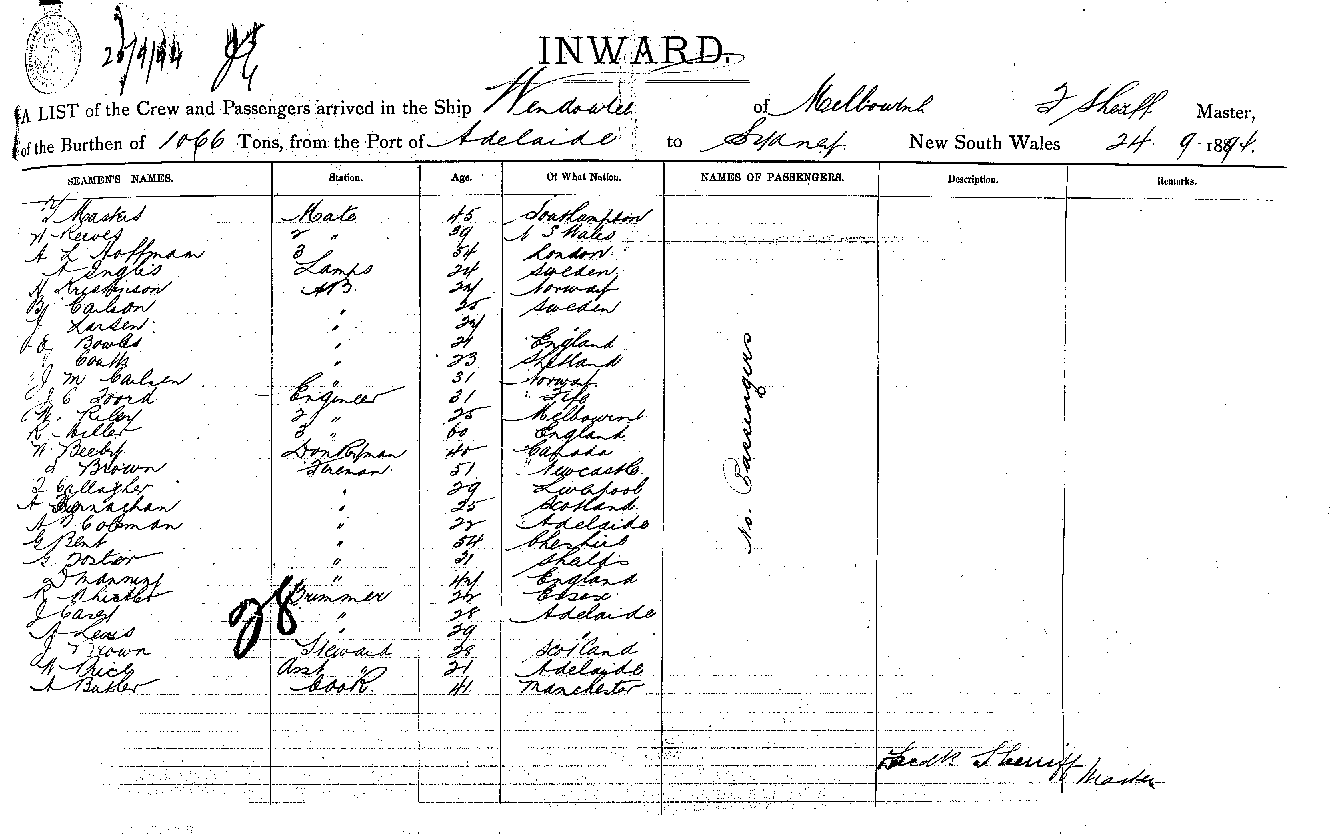 24/9/94
INWARD.
A LIST of the Crew and Passengers arrived in the Ship Wendouree of Melbourne F Sheriff Master,
of the Burthen of 1066 Tons, from the Port of Adelaide to Sydney New South Wales 24 9 1894.
SEAMEN'S NAMES. Station. Age. Of What Nation. NAMES OF PASSENGERS. Description. Remarks.
Maskis Mate 45 Southampton
W Reeves 2 " 39 N S Wales
A L Hoffmam 3 54 London
A Inglis Lamps 24 Sweden
Kristinson AB 24 Norway
Carlson " 25 Sweden
J Larsen " 24 "
E Bowles " 21 England
Coutts " 23 Shetland
J M Carlsen " 31 Norway
J C Foord Engineer 31 Fife
W. Riley 2 " 25 Melbourne
R Miller 3 " 60 England
W Beeby Donkeyman 40 Canada
Brown Fireman 51 Newcastle
Gallagher " 29 Liverpool
A " 25 Scotland
A Coleman " 22 Adelaide
G Bent " 54 Cheshire
G Foster " 31 Shields
Manning " 42 England
R Whistler Trimmer 22 Essex
J Carey " 28 Adelaide
A Lewis " 29 "
J Brown Steward 28 Scotland
W Price Asst " 21 Adelaide
A Butler Cook 41 Manchester
28
No. Passengers
Fredk Sherriff
Master